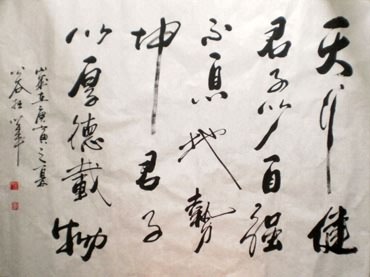 天行健
君子以自强
不息地勢
坤君子
以厚德載物
歲在庚寅之